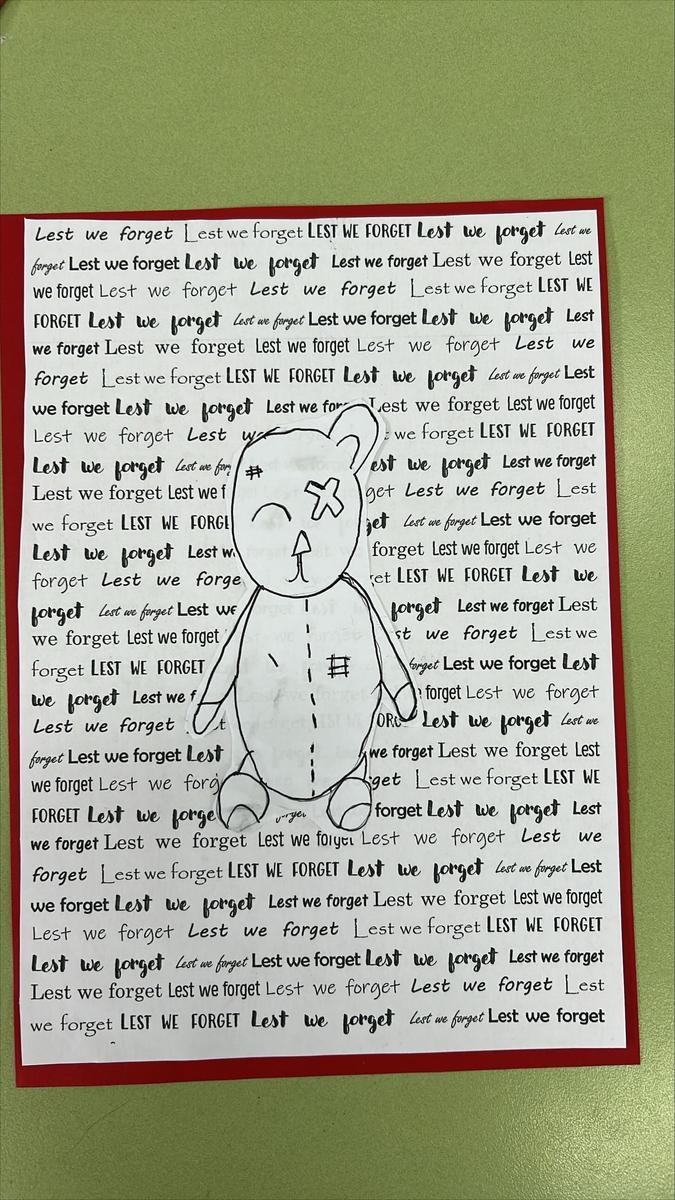 Lest we forget Lest we forget LEST WE FORGET Lest we forget Lest we
forget Lest we forget Lest we forget Lest we forget Lest we forget Lest
we forget Lest we forget Lest we forget Lest we forget LEST WE
FORGET Lest we forget Lest we forget Lest we forget Lest we forget Lest
we forget Lest we forget Lest we forget Lest we forget Lest we
forget Lest we forget LEST WE FORGET Lest we forget Lest we forget Lest
we forget Lest we forget Lest we Lest we forget Lest we forget
Lest we forget Lest we forget LEST WE FORGET
Lest we forget Lest we Lest we forget
Lest we forget Lest we Lest we forget Lest
we forget LEST WE Lest we forget Lest we forget
Lest we forget Lest forget Lest we forget Lest we
forget Lest we LEST WE FORGET Lest we
forget Lest we forget Lest we forget Lest we forget Lest
we forget Lest we forget we forget Lest we
forget LEST WE FORGET forget Lest we forget Lest
we forget Lest we forget Lest we forget
Lest we forget Lest we forget Lest we
forget Lest we forget Lest we forget Lest we forget Lest
we forget Lest we Lest we forget LEST WE
FORGET Lest we forget Lest we forget Lest
we forget Lest we forget Lest we forget Lest we forget Lest we
forget Lest we forget LEST WE FORGET Lest we forget Lest we forget Lest
we forget Lest we forget Lest we forget Lest we forget Lest we forget
Lest we forget Lest we forget Lest we forget LEST WE FORGET
Lest we forget Lest we forget Lest we forget Lest we forget Lest we forget
Lest we forget Lest we forget Lest we forget Lest we forget Lest
we forget LEST WE FORGET Lest we forget Lest we forget Lest we forget